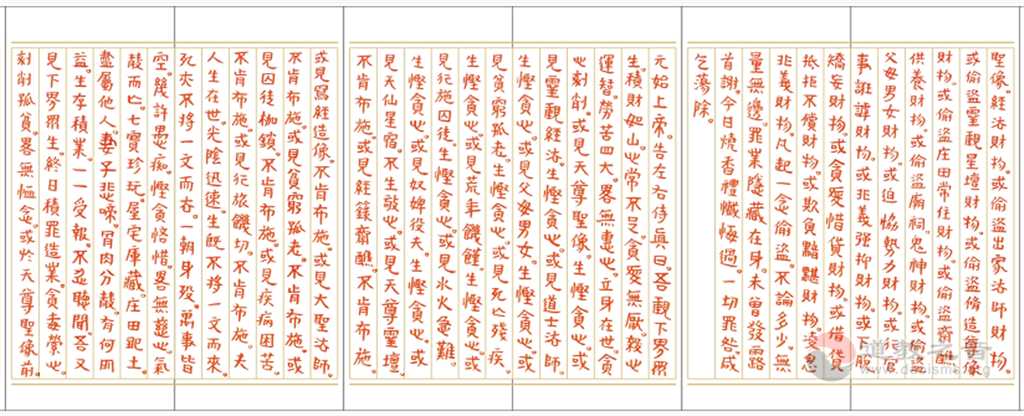 聖像。經法財物。或偷盜出家法師財物。
或偷盜靈觀星壇財物。或偷盜脩造尊像
財物。或偷盜庄田常住財物。或偷盜齋醮
供養財物。或偷盜廟祠鬼神財物。或偷盜
父母男女財物。或迫脅勢力財物。或行官
事誑諱財物。或非義強抑財物。或
矯妄財物。或貪愛惜貨財物。或借貸
抵拒不償財物。或欺負黠騃財物。淩忽
非義財物。凡起一念偷盜。不論多少。無
量無邊。罪業隱藏在身。未曾發露
首謝。今日燒香禮懺悔過。一切罪咎咸
乞蕩除。
元始上帝。告左右侍眞曰。吾觀下界眾
生。積財如山。心常不足。貪愛無厭。殺心
運智。勞苦四大。畧無恚心。立身在世。貪
心刻削。或見天尊聖像。生慳貪心。或
見靈觀經法。生慳貪心。或見道士法師
生慳貪心。或見父母男女。生慳貪心。或
見貧窮孤老。生慳貪心。或見死亡殘疾。
生慳貪心。或見荒年饑饉。生慳貪心。或
見行施囚徒。生慳貪心。或見水火急難。
生慳貪心。或見奴婢役夫。生慳貪心。或
見天仙星宿。不生敬心。或見天尊靈壇
不肯布施。或見經籙齋醮。不肯布施
或見寫經造像。不肯布施。或見大聖法師。
不肯布施。或見貧窮孤老。不肯布施。或
見囚徒枷鎖。不肯布施。或見疾病困苦
不肯布施。或見行旅饑切。不肯布施。夫
人生在世。光陰迅速。生既不將一文而來
死夾不將一文而去。一朝身殁。萬事皆
空。幾許愚痴。慳貪悋惜。畧無慈心。氣
散而亡。七寶珍玩。屋宅庫藏。庄田跎土
盡屬他人。妻子悲啼。骨肉分散。有何所
益。生存積業。一一受報。不忍聽聞。吾又
見下界眾生。終日積罪造業。貪妻縈心
刻削孤貧。畧無恤念。或於天尊聖像前
道教之音
www.daoisms.org